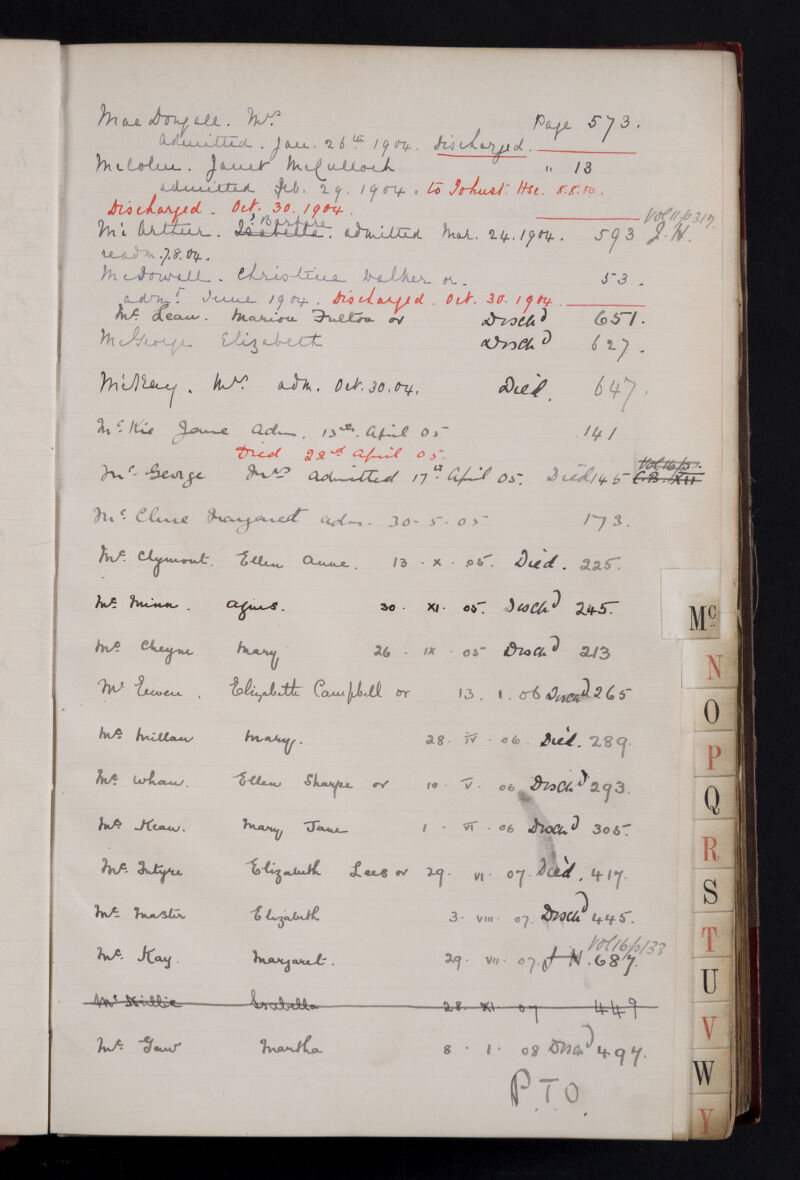 MacDougall. Mrs Page 573.
admitted. Jan. 26th 1904. Discharged.
McColm. Janet McCulloch " 13
admitted Feb. 29. 1904. to Johnst. Hse. 8.8.04.
Discharged. Oct. 30. 1904.
? Barbara Vol 11/p319
McArthur. Isabella. admitted Mar. 24. 1904. 593 J.H.
readm. 7.8.04.
McDowall. Christina Walker or. 53.
admd. June 1904. Discharged. Oct. 30. 1904.
Mc Lean. Marion Fulton or Dischd 651.
McGeorge Elizabeth Dischd 627.
McKay. Mrs. adm. Oct. 30. 04. Died. 647.
McKie Jane Adm. 13th. April 05 141
Died 22nd April 05.
Vol 16/p.
McGeorge Mrs admitted 17th April 05. Died 145 C.B. XII
McClure Margaret adm. 30-5-05 173.
Mc Clymont. Ellen Anne. 13. X. 05. Died. 225.
Mc Minn. Agnes. 30. XI. 05. Dischd 245.
Mc Cheyne Mary 26. IX. 05 Dischd 213
Mc Ewen. Elizabeth Campbell or 13. 1. 06 Dischd 265
Mc Millan Mary. 28. IV. 06. Died. 289.
Mc Whan. Ellen Sharpe or 10. V. 06 Dischd 293.
Mc Kean. Mary Jane 1. VI. 06 Dischd 305.
Mc Intyre Elizabeth Lees or 29. VI. 07. Died. 417.
Mc Master Elizabeth 3. VIII. 07. Dischd 445.
Vol 16/p133
Mc Kay. Margaret. 29. VII. 07. J H. 687.
Isabella 28. XI. 07 449
Mc Gaw Martha 8. 1. 08 Dischd 497.
P.T.O.
Mc
N
O
P
Q
R
S
T
U
V
W
Y